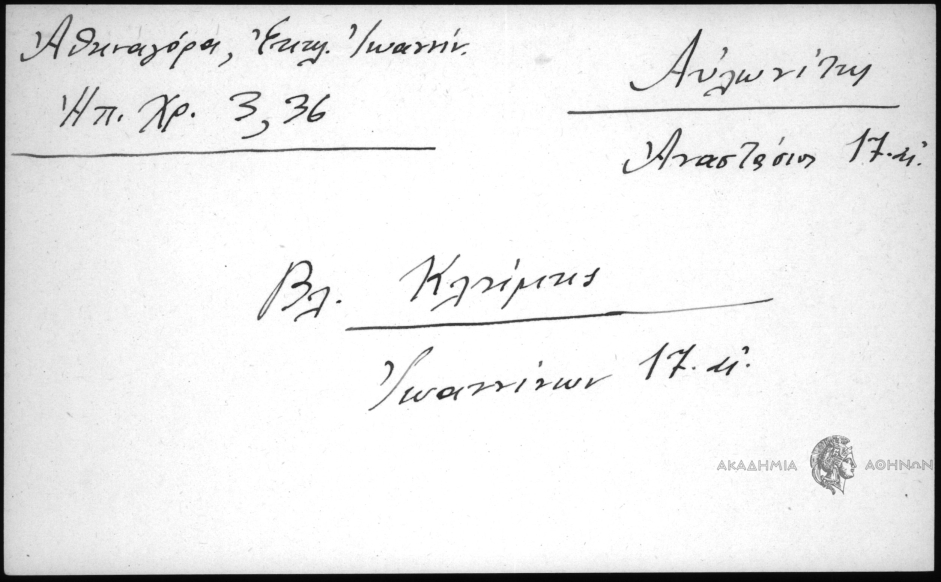 Ἀθηναγόρα, Ἐκκλ. Ἰωαννίν.
Ἠπ. Χρ. 3, 36
Αὐλωνίτης
Ἀναστάσιος 17. μ̓.
Βλ. Κλήμης
Ἰωαννίνων 17. μ̓.
ΑΚΑΔΗΜΙΑ ΑΘΗΝΩΝ